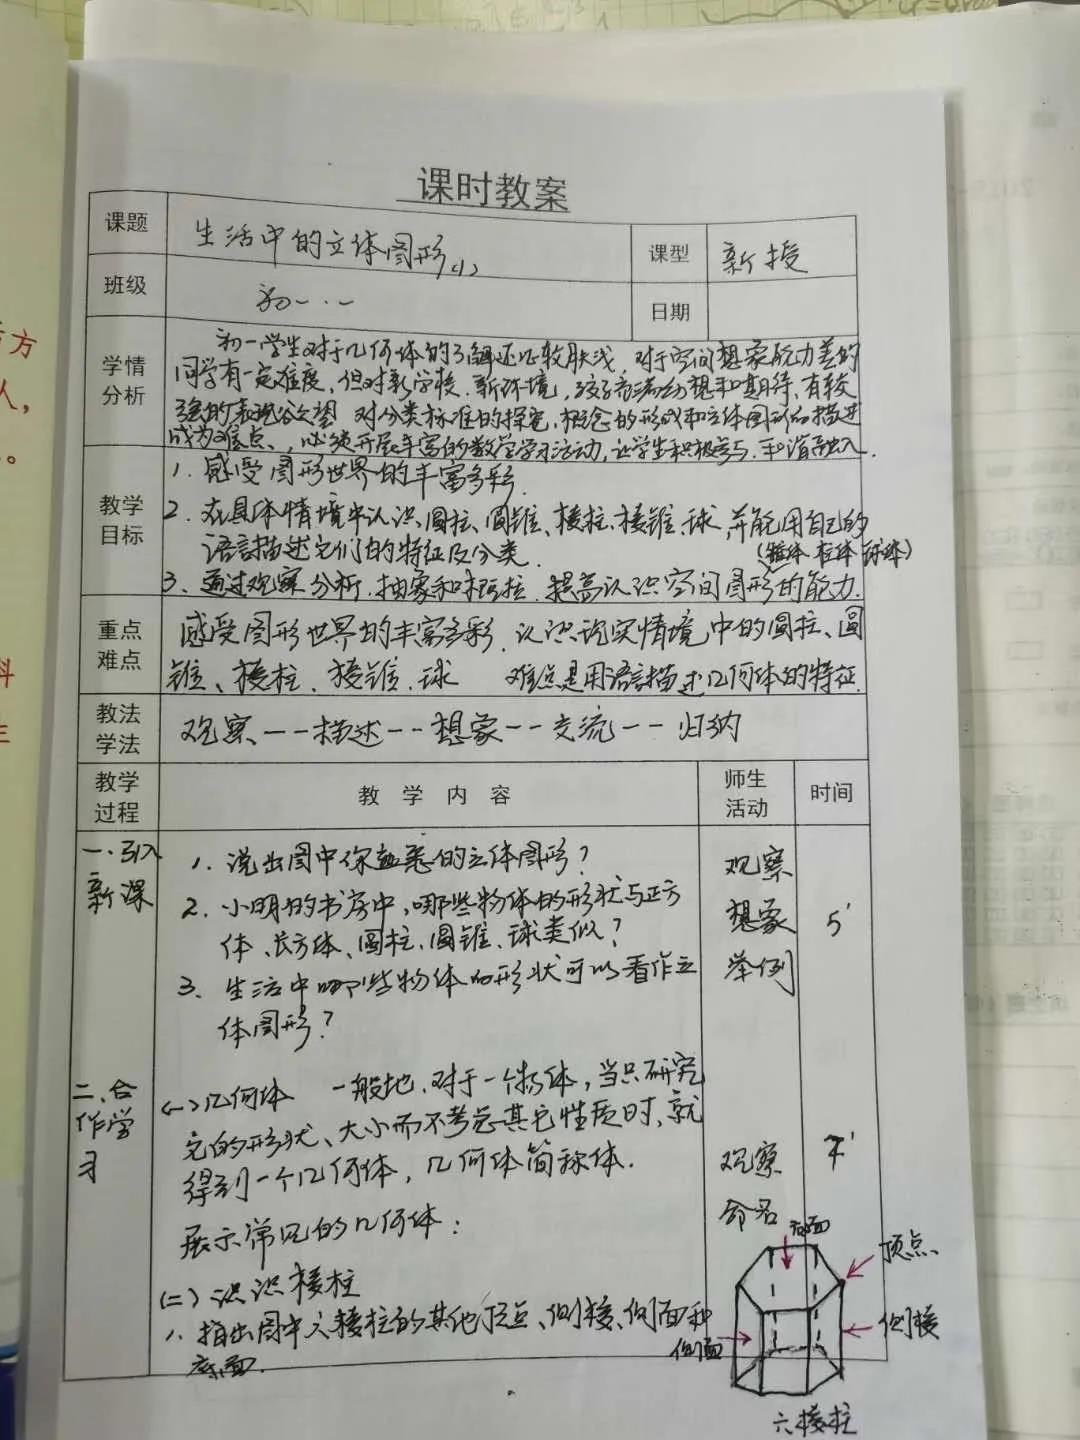 课时教案
课题
生活中的立体图形(1)
课型
新授
班级
初一·一
日期
学情
分析
初一学生对于几何体的了解还比较肤浅,对于空间想象能力差的
同学有一定难度,但对新学校、新环境,孩子充满幻想和期待,有较
强的表现欲望 对分类标准的探究,概念的形成和立体图形的描述
成为难点,必须开展丰富的数学学习活动,让学生积极参与,和谐融入.
教学
目标
1. 感受图形世界的丰富多彩.
2. 在具体情境中认识圆柱、圆锥、棱柱、棱锥、球,并能用自己的
语言描述它们的特征及分类.
(锥体 柱体 球体)
3. 通过观察 分析.抽象和概括.提高认识空间图形的能力.
重点
难点
感受图形世界的丰富多彩.认识现实情境中的圆柱、圆
锥、棱柱、棱锥.球 难点是用语言描述几何体的特征.
教法
学法
观察——描述——想象——交流——归纳
教学
过程
教 学 内 容
师生
活动
时间
一、引入
新课
1. 说出图中你熟悉的立体图形?
2. 小明的书房中,哪些物体的形状与正方
体、长方体、圆柱、圆锥、球类似?
3. 生活中哪些物体的形状可以看作立
体图形?
观察
想象
举例
5'
二、合
作学
习
(一)几何体 一般地.对于一个物体,当只研究
它的形状、大小而不考虑其它性质时,就
得到一个几何体,几何体简称体.
展示常见的几何体:
观察
命名
7'
(二)认识棱柱
1. 指出图中六棱柱的其他顶点、侧棱、侧面和
底面.
底面
顶点
侧棱
侧面
六棱柱